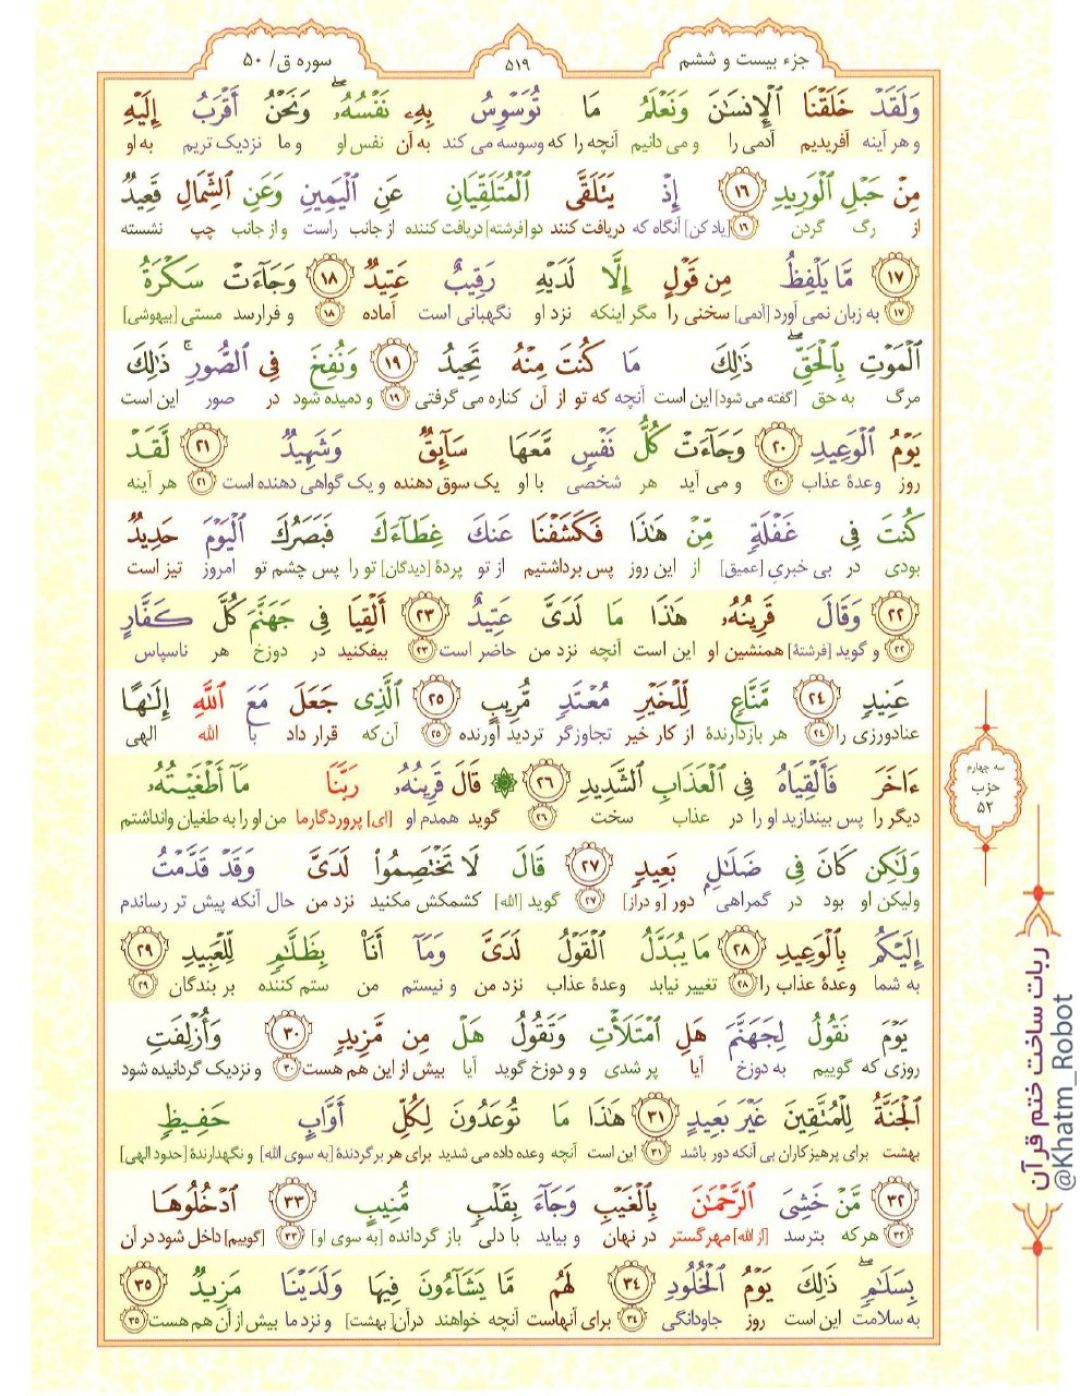 جزء بیست و ششم
۵۱۹
سوره ق / ۵۰
وَلَقَدْ خَلَقْنَا ٱلْإِنسَـٰنَ وَنَعْلَمُ مَا تُوَسْوِسُ بِهِۦ نَفْسُهُۥ ۖ وَنَحْنُ أَقْرَبُ إِلَيْهِ
و هر آینه آفریدیم آدمی را و می دانیم آنچه را که وسوسه می کند به آن نفس او و ما نزدیک تریم به او
مِنْ حَبْلِ ٱلْوَرِيدِ ۱۶ إِذْ يَتَلَقَّى ٱلْمُتَلَقِّيَانِ عَنِ ٱلْيَمِينِ وَعَنِ ٱلشِّمَالِ قَعِيدٌ
از رگ گردن ۱۶ [یاد کن] آنگاه که دریافت کنند دو [فرشته] دریافت کننده از جانب راست و از جانب چپ نشسته
۱۷ مَّا يَلْفِظُ مِن قَوْلٍ إِلَّا لَدَيْهِ رَقِيبٌ عَتِيدٌ ۱۸ وَجَآءَتْ سَكْرَةُ
۱۷ به زبان نمی آورد [آدمی] سخنی را مگر اینکه نزد او نگهبانی است آماده ۱۸ و فرارسد مستی [بیهوشی]
ٱلْمَوْتِ بِٱلْحَقِّ ۖ ذَٰلِكَ مَا كُنتَ مِنْهُ تَحِيدُ ۱۹ وَنُفِخَ فِى ٱلصُّورِ ۚ ذَٰلِكَ
مرگ به حق [گفته می شود] این است آنچه که تو از آن کناره می گرفتی ۱۹ و دمیده شود در صور این است
يَوْمُ ٱلْوَعِيدِ ۲۰ وَجَآءَتْ كُلُّ نَفْسٍ مَّعَهَا سَآئِقٌ وَشَهِيدٌ ۲۱ لَّقَدْ
روز وعدهٔ عذاب ۲۰ و می آید هر شخصی با او یک سوق دهنده و یک گواهی دهنده است ۲۱ هر آینه
كُنتَ فِى غَفْلَةٍ مِّنْ هَـٰذَا فَكَشَفْنَا عَنكَ غِطَآءَكَ فَبَصَرُكَ ٱلْيَوْمَ حَدِيدٌ
بودی در بی خبری [عمیق] از این روز پس برداشتیم از تو پردهٔ [دیدگان] تو را پس چشم تو امروز تیز است
۲۲ وَقَالَ قَرِينُهُۥ هَـٰذَا مَا لَدَىَّ عَتِيدٌ ۲۳ أَلْقِيَا فِى جَهَنَّمَ كُلَّ كَفَّارٍ
۲۲ و گوید [فرشتهٔ] همنشین او این است آنچه نزد من حاضر است ۲۳ بیفکنید در دوزخ هر ناسپاس
عَنِيدٍ ۲۴ مَّنَّاعٍ لِّلْخَيْرِ مُعْتَدٍ مُّرِيبٍ ۲۵ ٱلَّذِى جَعَلَ مَعَ ٱللَّهِ إِلَـٰهًا
عنادورزی را ۲۴ هر بازدارندهٔ از کار خیر تجاوزگر تردید آورنده ۲۵ آن که قرار داد با الله الهی
ءَاخَرَ فَأَلْقِيَاهُ فِى ٱلْعَذَابِ ٱلشَّدِيدِ ۲۶ ۞ قَالَ قَرِينُهُۥ رَبَّنَا مَآ أَطْغَيْتُهُۥ
دیگر را پس بیندازید او را در عذاب سخت ۲۶ گوید همدم او [ای] پروردگارما من او را به طغیان وانداشتم
وَلَـٰكِن كَانَ فِى ضَلَـٰلٍۭ بَعِيدٍ ۲۷ قَالَ لَا تَخْتَصِمُوا۟ لَدَىَّ وَقَدْ قَدَّمْتُ
ولیکن او بود در گمراهی دور [و دراز] ۲۷ گوید [الله] کشمکش مکنید نزد من حال آنکه پیش تر رساندم
إِلَيْكُم بِٱلْوَعِيدِ ۲۸ مَا يُبَدَّلُ ٱلْقَوْلُ لَدَىَّ وَمَآ أَنَا۠ بِظَلَّـٰمٍ لِّلْعَبِيدِ ۲۹
به شما وعدهٔ عذاب را ۲۸ تغییر نیابد وعدهٔ عذاب نزد من و نیستم من ستم کننده بر بندگان ۲۹
يَوْمَ نَقُولُ لِجَهَنَّمَ هَلِ ٱمْتَلَأْتِ وَتَقُولُ هَلْ مِن مَّزِيدٍ ۳۰ وَأُزْلِفَتِ
روزی که گوییم به دوزخ آیا پر شدی و و دوزخ گوید آیا بیش از این هم هست ۳۰ و نزدیک گردانیده شود
ٱلْجَنَّةُ لِلْمُتَّقِينَ غَيْرَ بَعِيدٍ ۳۱ هَـٰذَا مَا تُوعَدُونَ لِكُلِّ أَوَّابٍ حَفِيظٍ
بهشت برای پرهیزکاران بی آنکه دور باشد ۳۱ این است آنچه وعده داده می شدید برای هر برگردندهٔ [به سوی الله] و نگهدارندهٔ [حدود الهی]
۳۲ مَّنْ خَشِىَ ٱلرَّحْمَـٰنَ بِٱلْغَيْبِ وَجَآءَ بِقَلْبٍ مُّنِيبٍ ۳۳ ٱدْخُلُوهَا
۳۲ هرکه بترسد [از الله] مهرگستر در نهان و بیاید با دلی باز گردانده [به سوی او] ۳۳ [گوییم] داخل شود در آن
بِسَلَـٰمٍ ۖ ذَٰلِكَ يَوْمُ ٱلْخُلُودِ ۳۴ لَهُم مَّا يَشَآءُونَ فِيهَا وَلَدَيْنَا مَزِيدٌ ۳۵
به سلامت این است روز جاودانگی ۳۴ برای آنهاست آنچه خواهند درآن [بهشت] و نزد ما بیش از آن هم هست ۳۵
سه چهارم
حزب
۵۲
ربات ساخت ختم قرآن
@Khatm_Robot